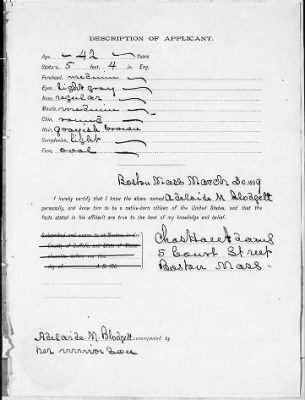 DESCRIPTION OF APPLICANT.
Age, 42 Years
Stature, 5 feet, 4 in. Eng.
Forehead, medium
Eyes, light gray
Nose, regular
Mouth, medium
Chin, round
Hair, grayish brown
Complexion, light
Face, oval
Boston Mass March 20 1919
I hereby certify that I know the above named Adelaide M Blodgett
personally, and know him to be a native-born citizen of the United States, and that the
facts stated in his affidavit are true to the best of my knowledge and belief.
Subscribed and sworn to at Boston, in the
County of Suffolk, and State of
5 Court Street
A.D. 191
Boston Mass.
Adelaide M. Blodgett accompanied by
her minor son